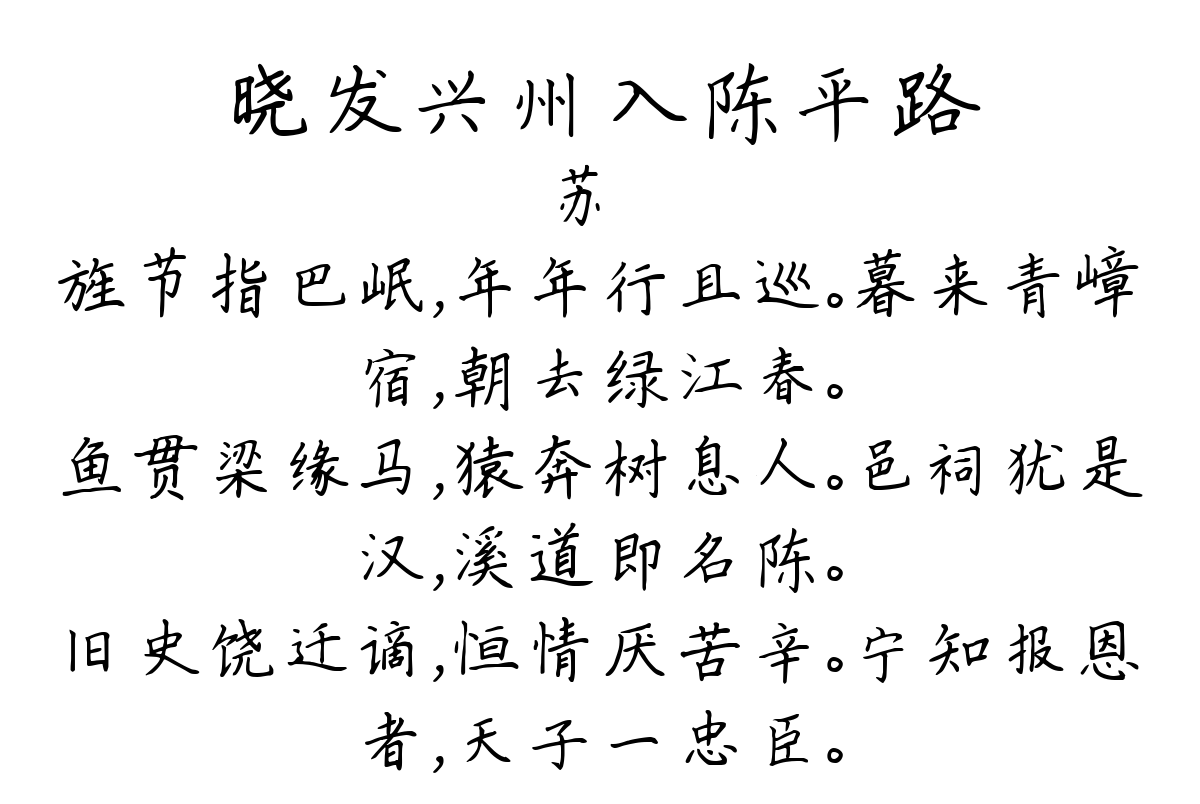 晓发兴州入陈平路
苏
旌节指巴岷,年年行且巡。暮来青嶂
宿,朝去绿江春。
鱼贯梁缘马,猿奔树息人。邑祠犹是
汉,溪道即名陈。
旧史饶迁谪,恒情厌苦辛。宁知报恩
者,天子一忠臣。